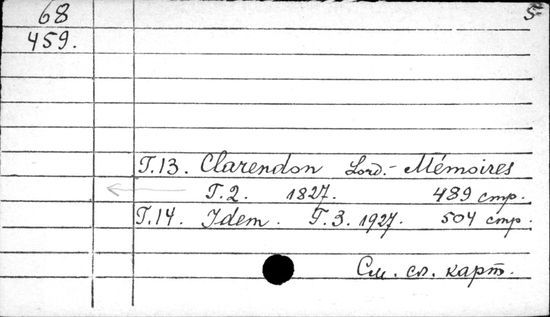 68
5
459.
Т.13. Clarendon Lord.- Mémoires
Т.2. 1827. 489 стр.
Т.14. Idem. Т.3. 1927. 504 стр.
См. сл. карт.